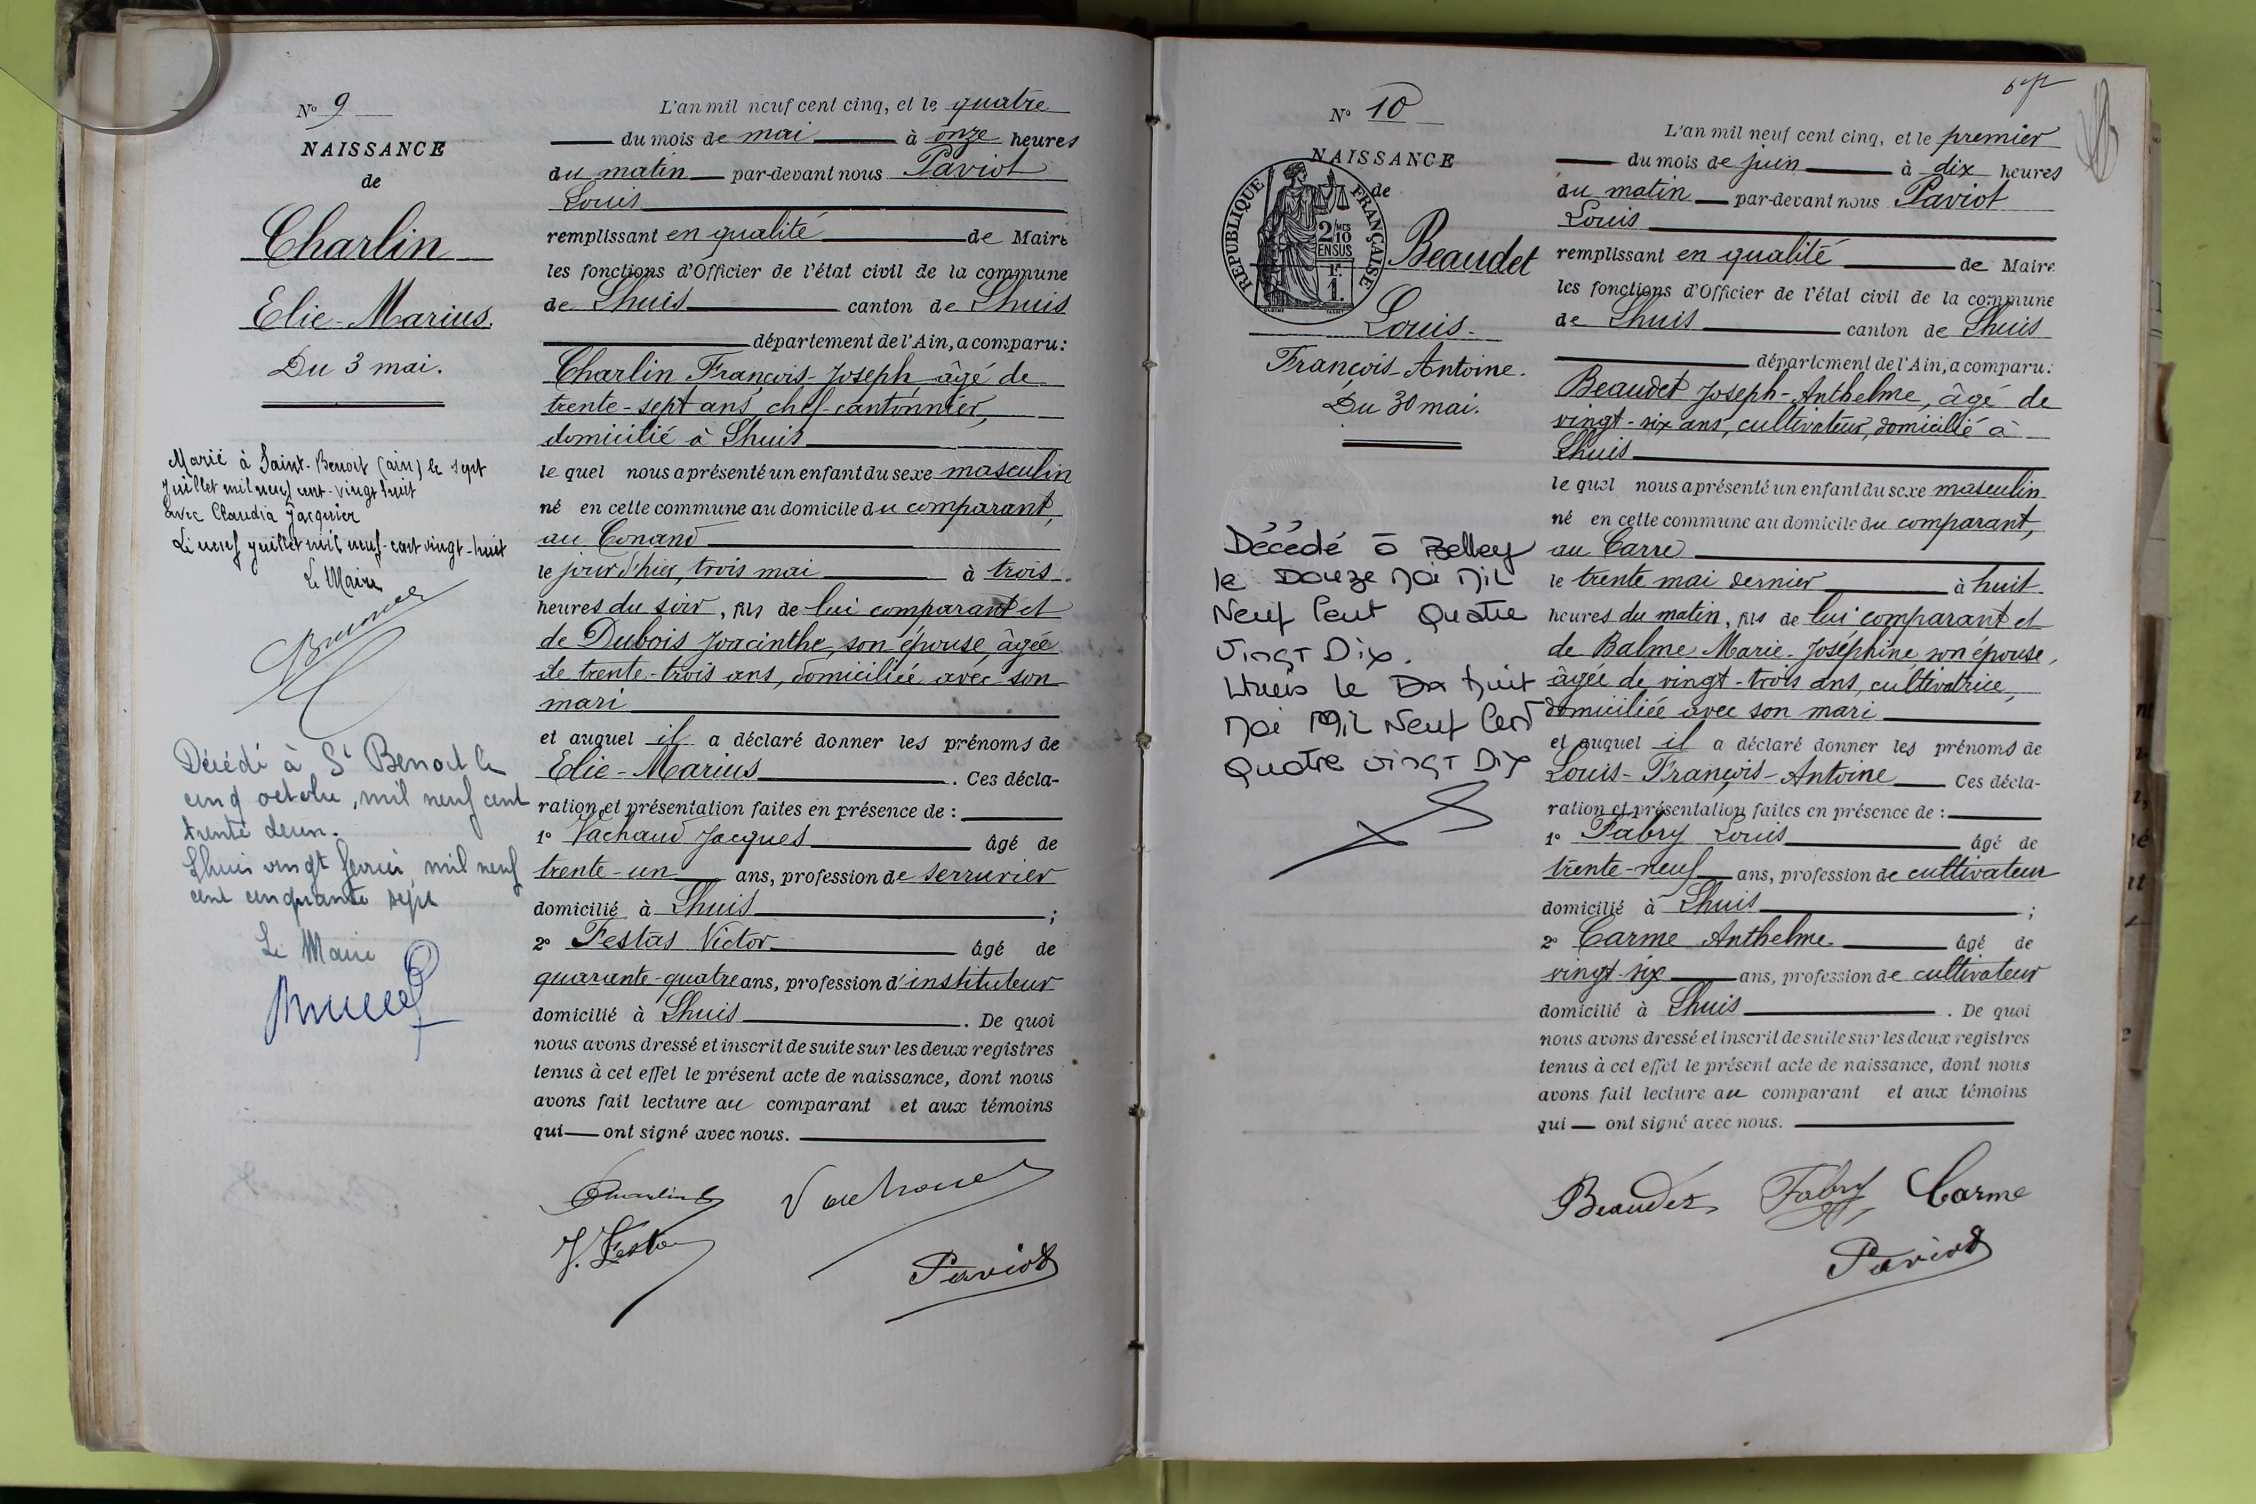 N° 9
NAISSANCE
de
Charlin
Elie-Marius.
Du 3 mai.
Marié à Saint-Benoit (ain) le sept
juillet mil neuf cent-vingt huit
avec Claudia Jacquier
Le neuf juillet mil neuf-cent vingt-huit
Le Maire
Décédé à St Benoit le
cinq octobre, mil neuf cent
trente deux.
Lhuis vingt février mil neuf
cent cinquante sept
Le Maire
L'an mil neuf cent cinq, et le quatre
du mois de mai à onze heures
du matin par-devant nous Paviot
Louis
remplissant en qualité de Maire
les fonctions d'Officier de l'état civil de la commune
de Lhuis canton de Lhuis
département de l'Ain, a comparu:
Charlin François-Joseph âgé de
trente-sept ans, chef-cantonnier,
domicilié à Lhuis
le quel nous a présenté un enfant du sexe masculin
né en cette commune au domicile du comparant,
au Conand
le jour d'hier, trois mai à trois
heures du soir, fils de lui comparant et
de Dubois Joacinthe, son épouse, âgée
de trente-trois ans, domiciliée avec son
mari
et auquel il a déclaré donner les prénoms de
Elie-Marius. Ces décla-
ration et présentation faites en présence de :
1° Vachaud Jacques âgé de
trente-un ans, profession de serrurier
domicilié à Lhuis ;
2° Festas Victor âgé de
quarante-quatre ans, profession d'instituteur
domicilié à Lhuis. De quoi
nous avons dressé et inscrit de suite sur les deux registres
tenus à cet effet le présent acte de naissance, dont nous
avons fait lecture au comparant et aux témoins
qui ont signé avec nous.
Charlin
V. Festas
Paviot
N° 10
NAISSANCE
de
RÉPUBLIQUE FRANÇAISE
2/10 MES
EN SUS
1 F.
Beaudet
Louis-
François-Antoine.
Du 30 mai.
Décédé à Belley
le Douze Mai Mil
Neuf Cent Quatre
Vingt Dix.
Lhuis le Dix huit
Mai Mil Neuf Cent
Quatre Vingt Dix
L'an mil neuf cent cinq, et le premier
du mois de juin à dix heures
du matin par-devant nous Paviot
Louis
remplissant en qualité de Maire
les fonctions d'Officier de l'état civil de la commune
de Lhuis canton de Lhuis
département de l'Ain, a comparu:
Beaudet Joseph-Anthelme, âgé de
vingt-six ans, cultivateur, domicilié à
Lhuis
le quel nous a présenté un enfant du sexe masculin
né en cette commune au domicile du comparant,
au Carre
le trente mai dernier à huit
heures du matin, fils de lui comparant et
de Balme Marie-Joséphine son épouse,
âgée de vingt-trois ans, cultivatrice,
domiciliée avec son mari
et auquel il a déclaré donner les prénoms de
Louis-François-Antoine Ces décla-
ration et présentation faites en présence de :
1° Fabry Louis âgé de
trente-neuf ans, profession de cultivateur
domicilié à Lhuis ;
2° Carme Anthelme âgé de
vingt-six ans, profession de cultivateur
domicilié à Lhuis. De quoi
nous avons dressé et inscrit de suite sur les deux registres
tenus à cet effet le présent acte de naissance, dont nous
avons fait lecture au comparant et aux témoins
qui ont signé avec nous.
Beaudet Fabry Carme
Paviot